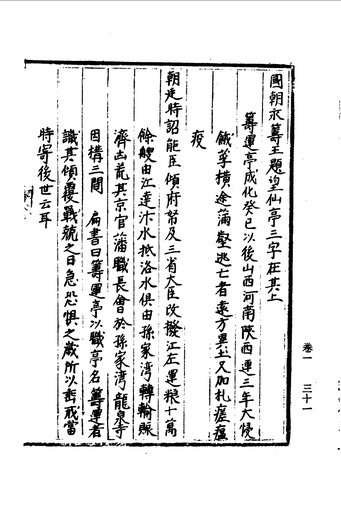 國朝永籌王題望仙亭三字在其上
籌運亭成化癸巳以後山西河南陝西連三年大侵
餓莩橫途蒲壑逃亡者遠方異土又加札瘥瘟
疫
朝廷特詔能臣傾府帑及三省大臣改撥江左運粮十萬
餘艘由江達汴水抵洛水俱由孫家湾轉輸賑
濟凶荒其京官藩職長會於孫家湾龍泉寺
因構三間扁書曰籌運亭以職亭名籌運者
識其傾覆戰兢之日急恐惧之歲所以誥戒當
時寄後世云耳
卷一 三十一